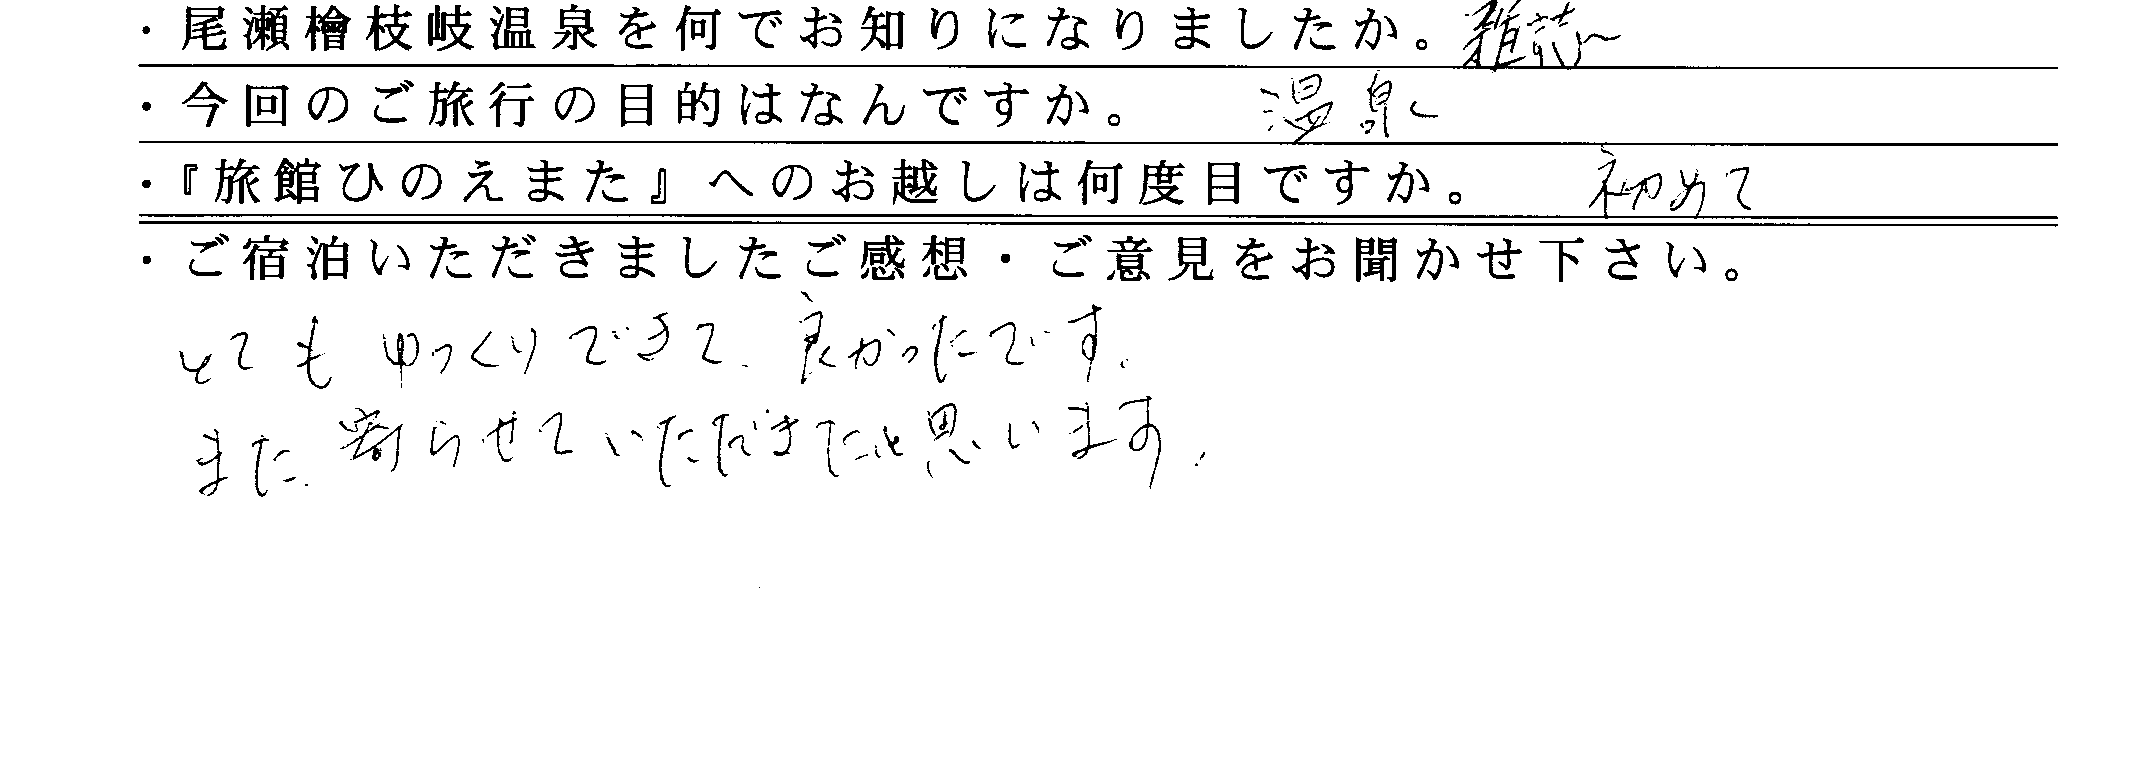 ・尾瀬檜枝岐温泉を何でお知りになりましたか。雑誌
・今回のご旅行の目的はなんですか。 温泉
・『旅館ひのえまた』へのお越しは何度目ですか。 初めて
・ご宿泊いただきましたご感想・ご意見をお聞かせ下さい。
とてもゆっくりできて、良かったです。
また、寄らせていただきたいと思います。